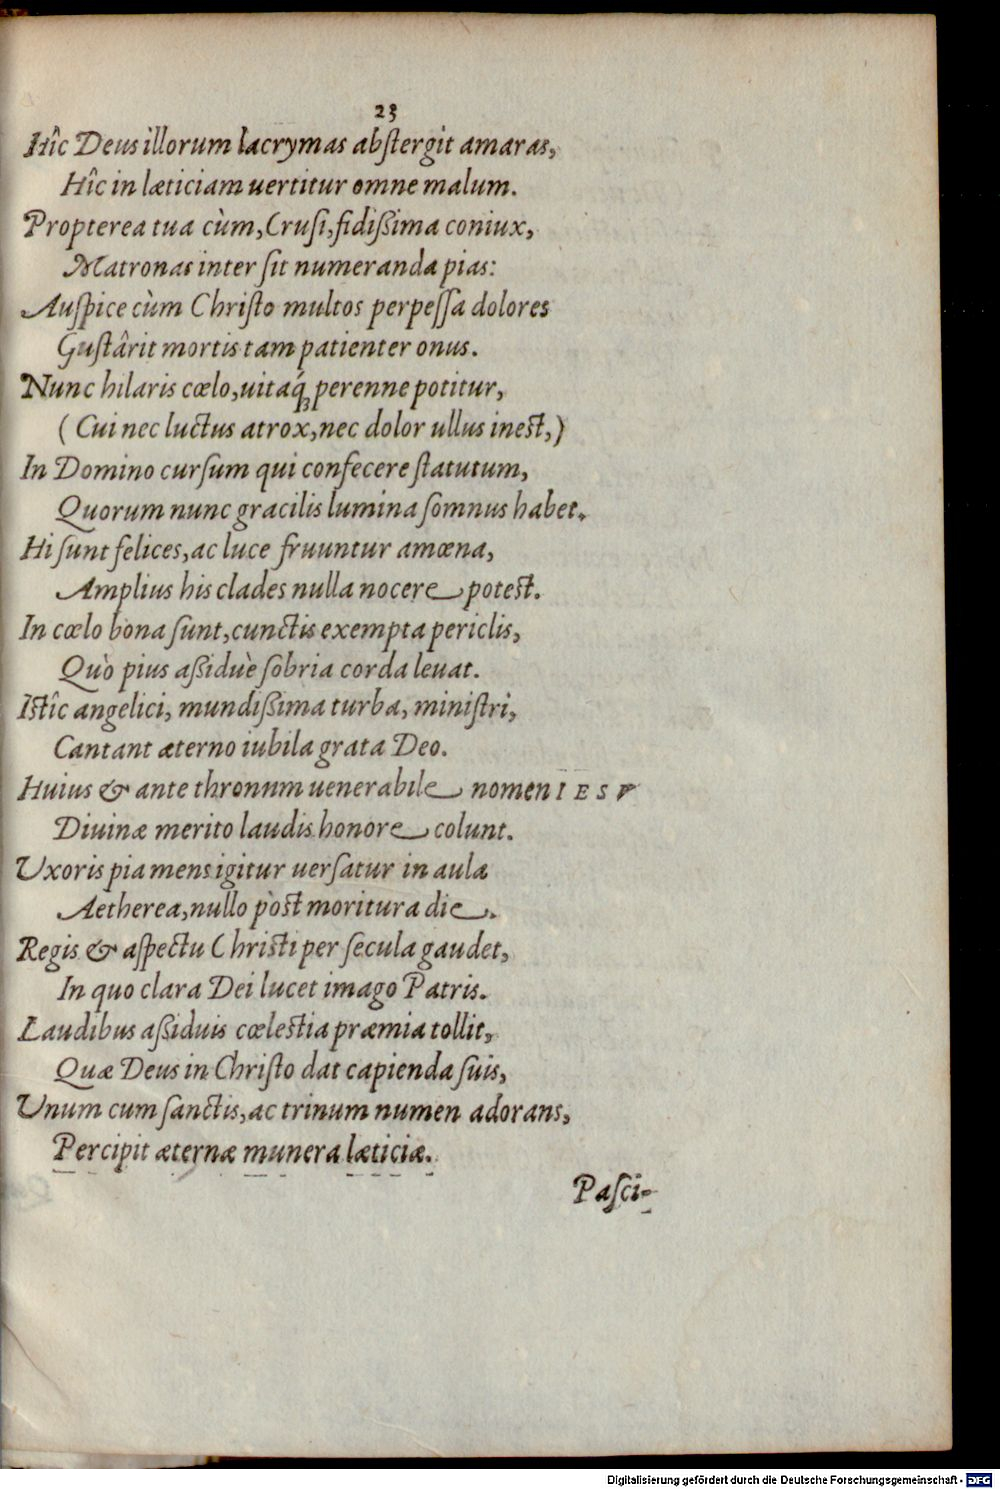 23
Hîc Deus illorum lacrymas abstergit amaras,
Hîc in læticiam uertitur omne malum.
Propterea tua cùm, Crusi, fidißima coniux,
Matronas inter sit numeranda pias:
Auspice cùm Christo multos perpessa dolores
Gustârit mortis tam patienter onus.
Nunc hilaris cœlo, uitaq́ꝫ perenne potitur,
(Cui nec luctus atrox, nec dolor ullus inest,)
In Domino cursum qui confecere statutum,
Quorum nunc gracilis lumina somnus habet.
Hi sunt felices, ac luce fruuntur amœna,
Amplius his clades nulla nocere potest.
In cœlo bona sunt, cunctis exempta periclis,
Quò pius aßiduè sobria corda leuat.
Istîc angelici, mundißima turba, ministri,
Cantant æterno iubila grata Deo.
Huius & ante thronum uenerabile nomen IESV
Diuinæ merito laudis honore colunt.
Uxoris pia mens igitur uersatur in aula
Aetherea, nullo pòst moritura die.
Regis & aspectu Christi per secula gaudet,
In quo clara Dei lucet imago Patris.
Laudibus aßiduis cœlestia præmia tollit,
Quæ Deus in Christo dat capienda suis,
Unum cum sanctis, ac trinum numen adorans,
Percipit æternæ munera læticiæ.
Pasci-
Digitalisierung gefördert durch die Deutsche Forschungsgemeinschaft - DFG